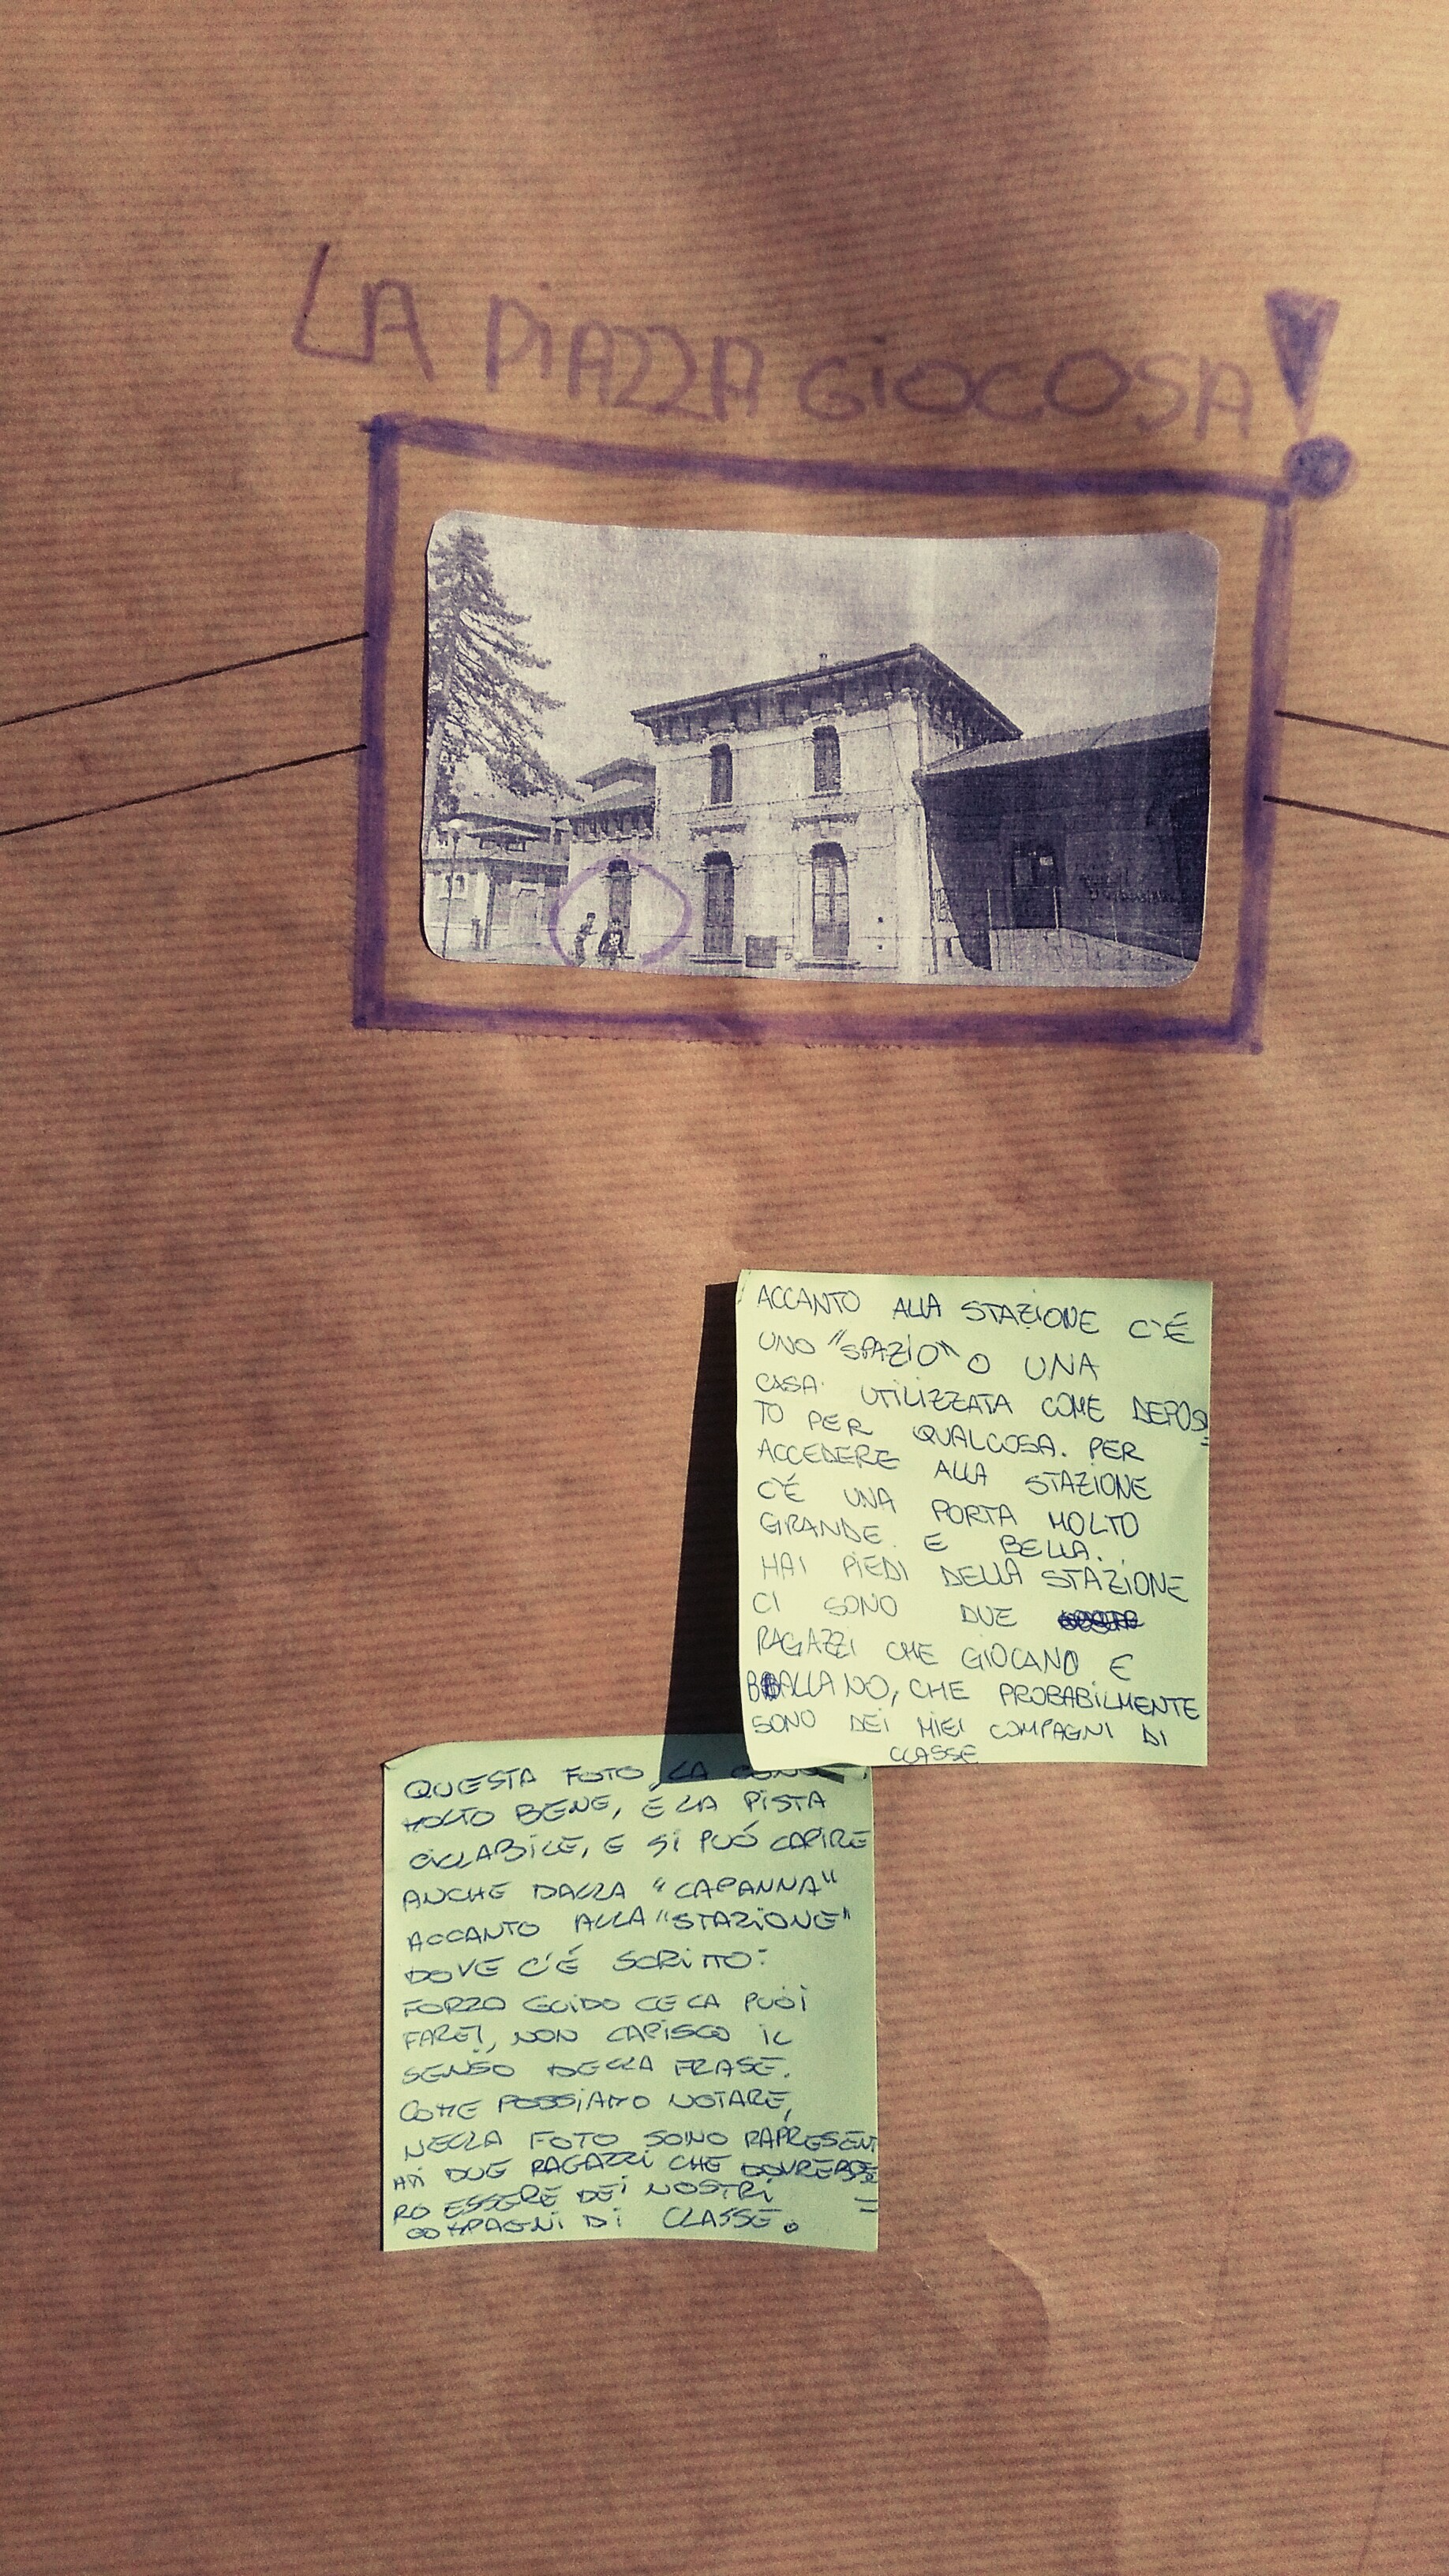 LA PIAZZA GIOCOSA!
ACCANTO ALLA STAZIONE C'É
UNO "SPAZIO" O UNA
CASA UTILIZZATA COME DEPOSI
TO PER QUALCOSA. PER
ACCEDERE ALLA STAZIONE
C'É UNA PORTA MOLTO
GRANDE E BELLA.
HAI PIEDI DELLA STAZIONE
CI SONO DUE
RAGAZZI CHE GIOCANO E
BALLANO, CHE PROBABILMENTE
SONO DEI MIEI COMPAGNI DI
CLASSE
QUESTA FOTO LA
MOLTO BENE, É LA PISTA
CICLABILE, E SI PUÓ CAPIRE
ANCHE DALLA "CAPANNA"
ACCANTO ALLA "STAZIONE"
DOVE C'É SCRITTO:
FORZO GUIDO CE LA PUOI
FARE!, NON CAPISCO IL
SENSO DELLA FRASE.
COME POSSIAMO NOTARE,
NELLA FOTO SONO RAPRESENT
ATI DUE RAGAZZI CHE DOVREBBE
RO ESSERE DEI NOSTRI
COMPAGNI DI CLASSE.